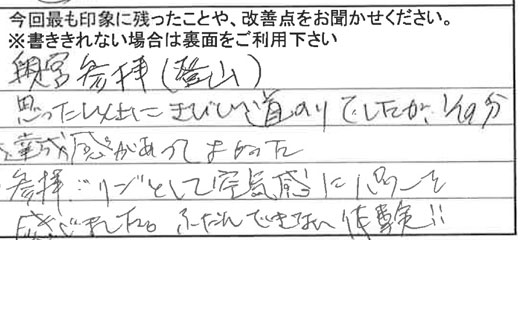 今回最も印象に残ったことや、改善点をお聞かせください。
※書ききれない場合は裏面をご利用下さい
奥宮参拝(登山)
思った以上にきびしい道のりでしたが、その分
達成感があってよかった
参拝 として空気感にパワーを
感じました。ふだんできない体験!!